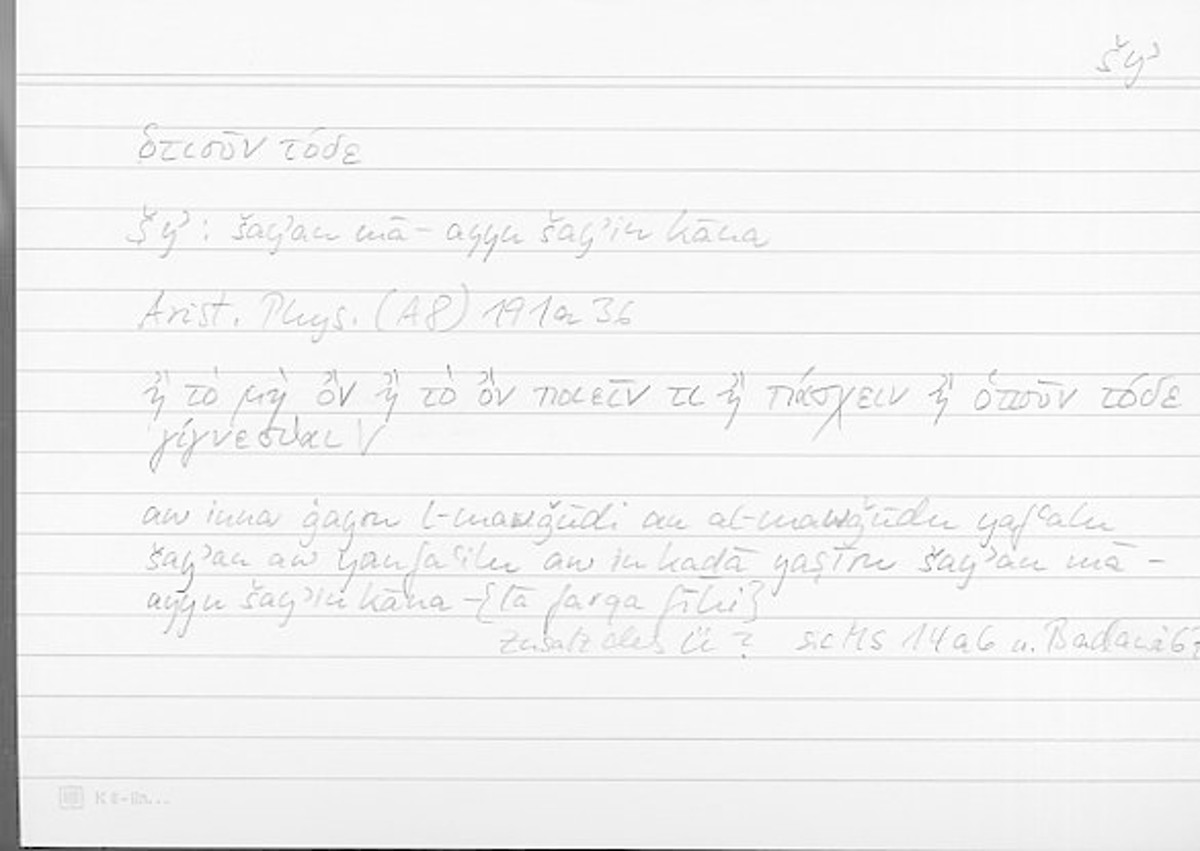 šyʾ
ὁτιοῦν τόδε
šyʾ : šayʾan mā – ayyu šayʾin kāna
Arist. Phys. (A8) 191a 36
ἢ τὸ μὴ ὂν ἢ τὸ ὂν ποιεῖν τι ἢ πάσχειν ἢ ὁτιοῦν τόδε
γίγνεσθαι
aw inna ġayra l-mawǧūdi au al-mawǧūdu yafʿalu
šayʾan aw yanfaʿilu aw in kadā yaṣīru šayʾan mā –
ayyu šayʾin kāna – {lā farqa fīhi}
Zusatz des Ü ? sic Hs 14a6 u. Badawī